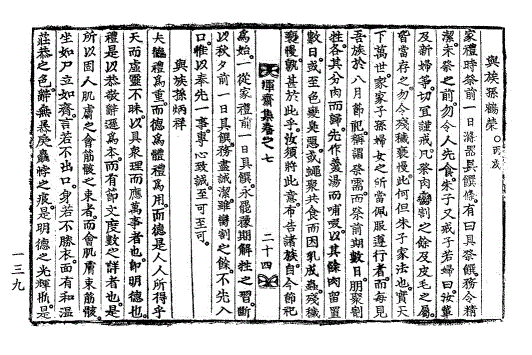 與族孫鶴榮 〇丙戌
家禮時祭前一日滌器具饌條有曰具祭饌務令精
潔未祭之前勿令人先食朱子又戒子若婦曰汝輩
及新婦等切宜謹戒凡祭肉臠割之餘及皮毛之屬
皆當存之勿令殘穢褻慢此何但朱子家法也實天
下萬世家家子孫婦女之所當佩服遵行者而每見
吾族於八月節祀稱謂祭需而祭前期數日朋聚割
牲各其分肉而歸先作羹湯而哺啜以其餘肉留置
數日或至色變臭惡或蠅聚共食而因乳成蟲殘穢
褻慢孰甚於此乎汝須將此意布告諸族自今節祀
暉齋集卷之七 二十四
爲始一從家禮前一日具饌永罷積期解牲之習斷
以秋夕前一日具饌務盡誠潔雖臠割之餘不先入
口惟以奉先一事專心致誠至可至可
與族孫炳祥
夫德禮爲重而德爲體禮爲用而德是人人所得乎
天而虛靈不昧以具衆理而應萬事者也卽明德也
禮是以恭敬辭遜爲本而有節文度數之詳者也是
所以固人肌膚之會筋骸之束者而會肌膚束筋骸
坐如尸立如齊言若不出口身若不勝衣面有和溫
莊恭之色辭無暴戾麤悖之疵是明德之光輝也是
一三九